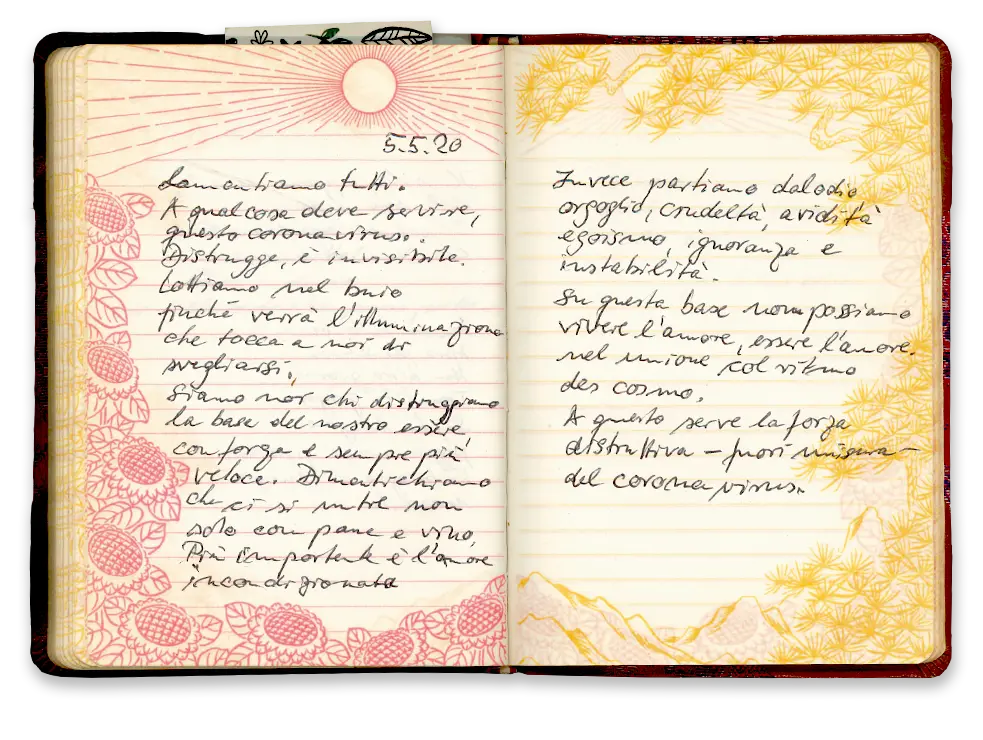 5.5.20
Lamentiamo tutti.
A qualcosa deve servire,
questo coronavirus.
Distrugge, è invisibile.
Lottiamo nel buio
finché verrà l'illuminazione
che tocca a noi di
svegliarsi.
Siamo noi chi distruggiamo
la base del nostro essere
con forza e sempre più
veloce. Dimentichiamo
che ci si nutre non
solo con pane e vino,
Più importante è l'amore
incondizionata
Invece partiamo dal odio
orgoglio, crudeltà, avidità
egoismo, ignoranza e
instabilità.
Su questa base non possiamo
vivere l'amore, essere l'amore.
nel unione col ritmo
des cosmo.
A questo serve la forza
distruttiva – fuori misura –
del coronavirus.